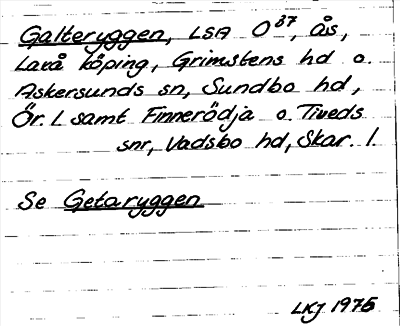 Galteryggen, LSA O 37, ås,
Laxå köping, Grimstens hd o.
Askersunds sn, Sundbo hd,
Ör. l samt Finnerödja o. Tiveds
snr, Vadsbo hd, Skar. l.
Se Getaryggen
LKJ 1975